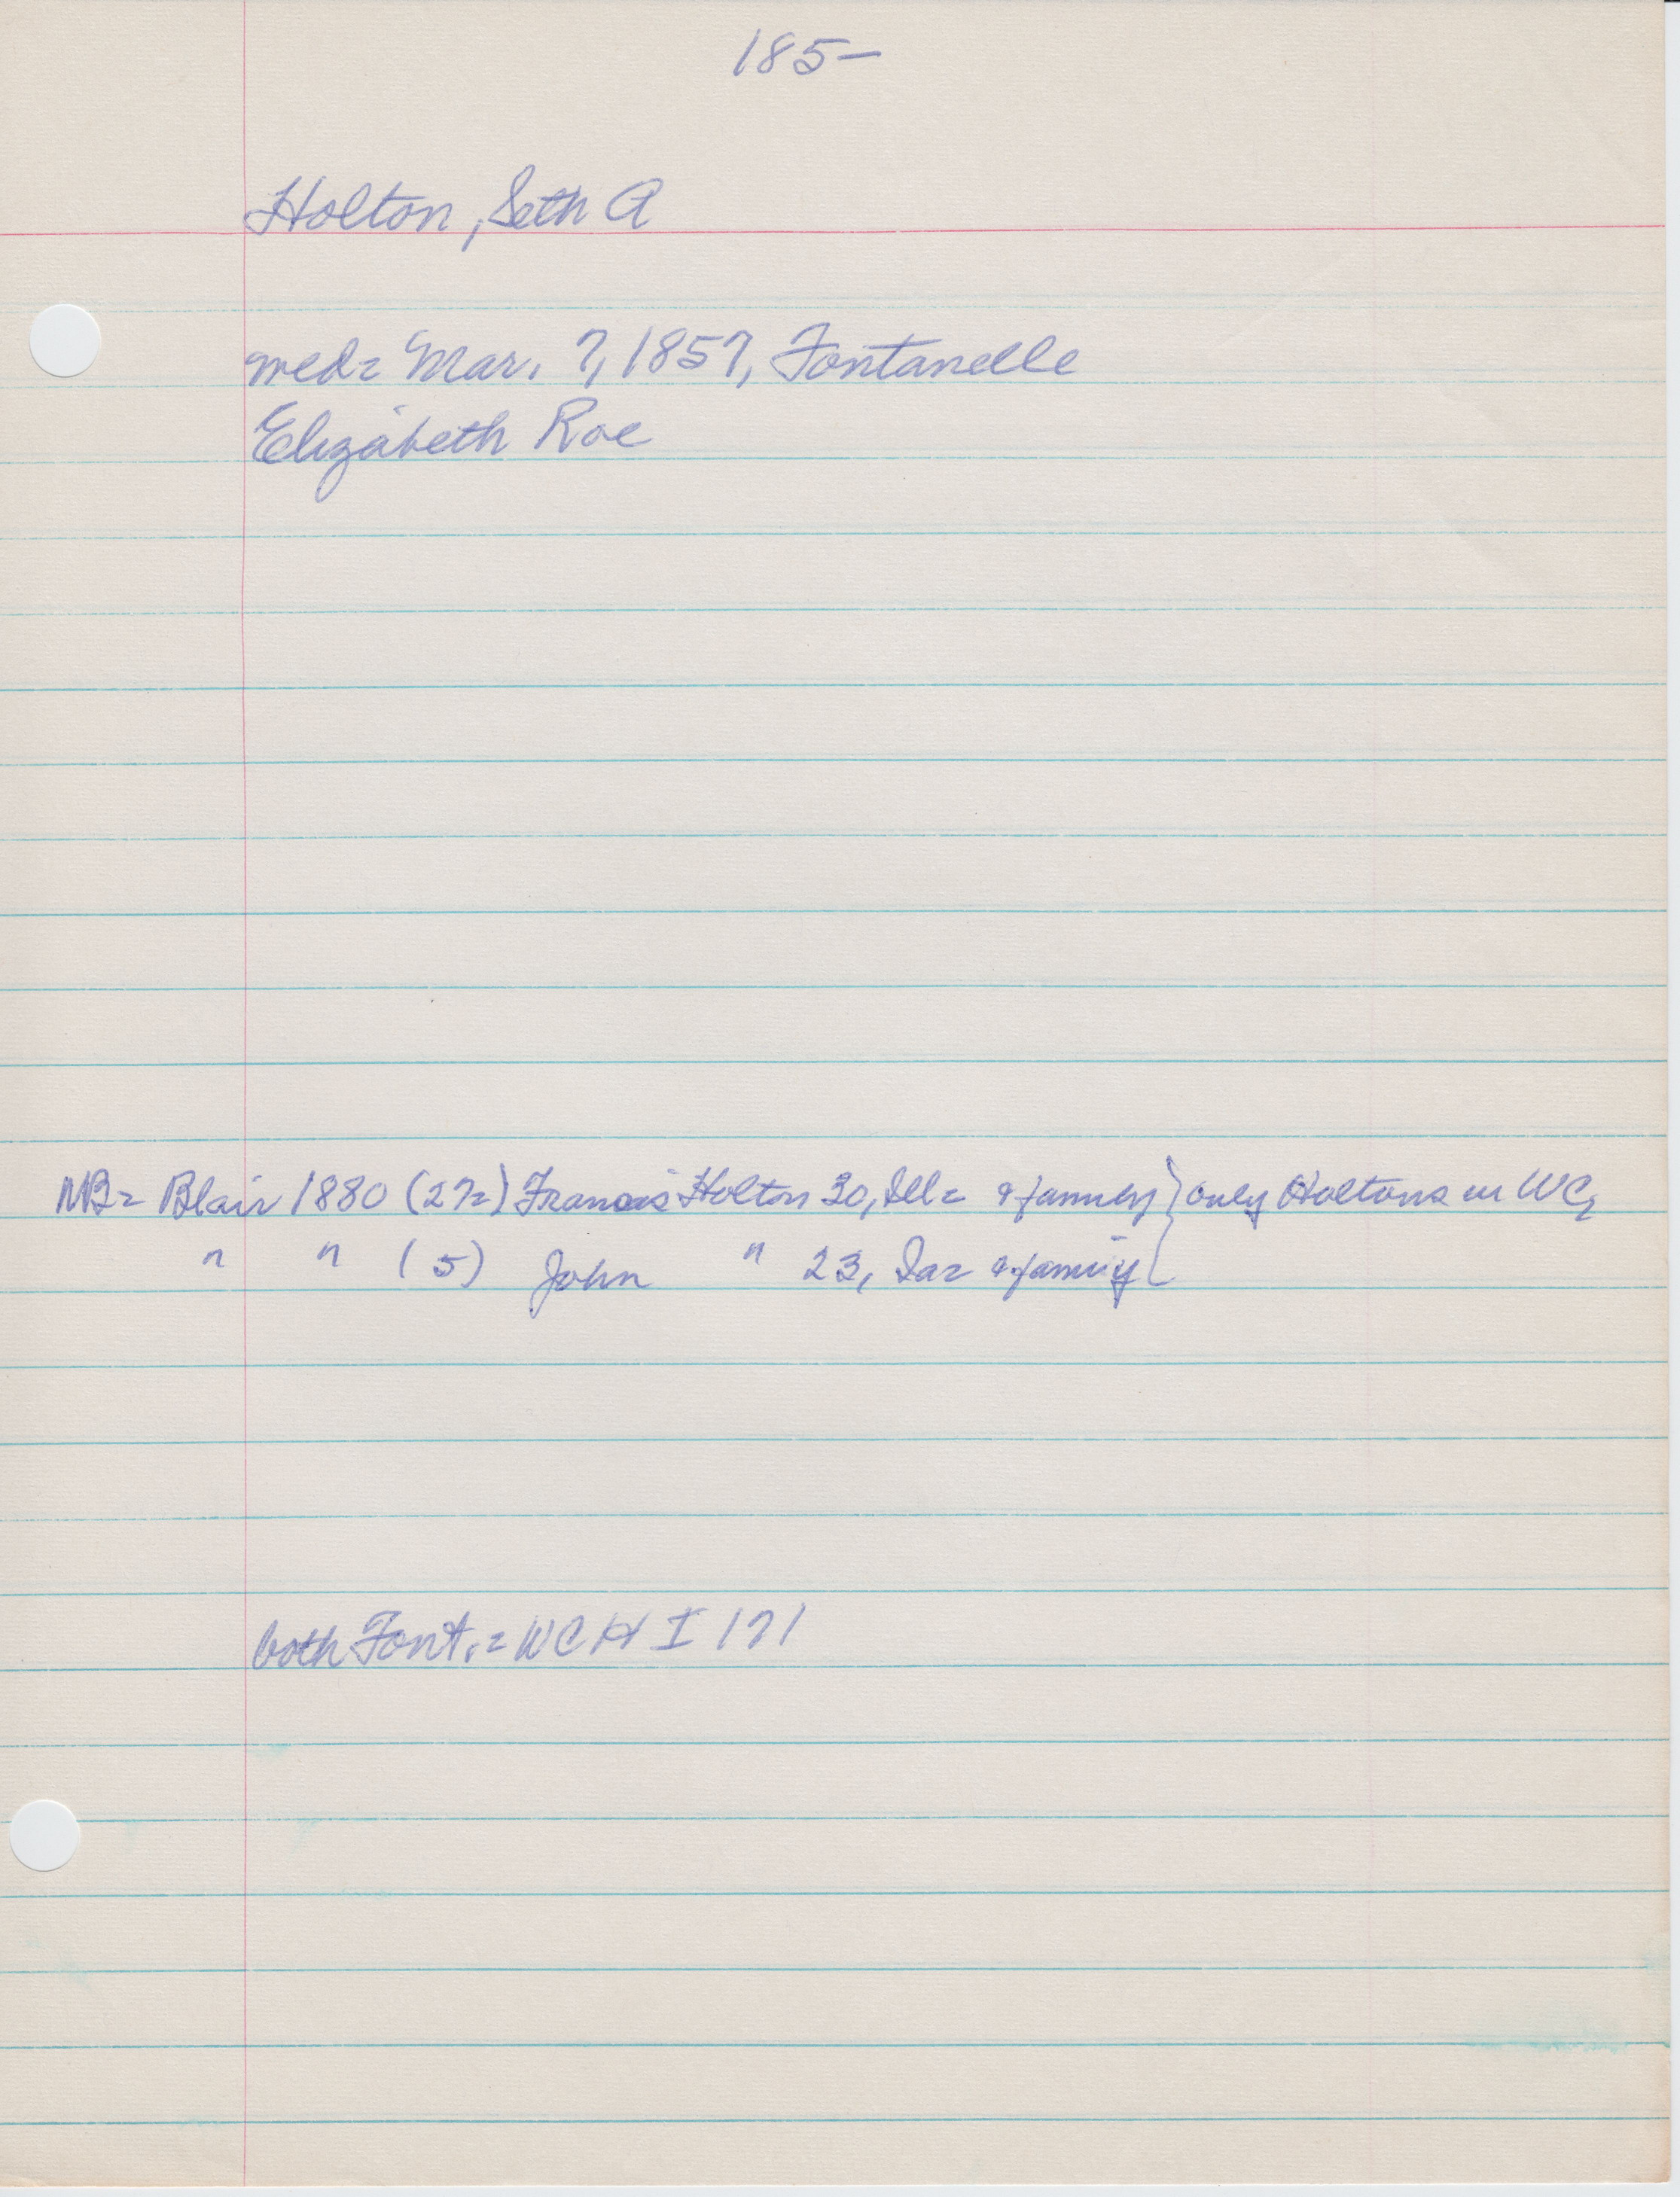 185–
Holton, Seth A
med= Mar. 7, 1857, Fontanelle
Elizabeth Roe
NB= Blair 1880 (27=) Francis Holton 30, Ill= & family } only Holtons in WC,
" " (5) John " 23, Ia= & family }
both Font.= WCH I 171